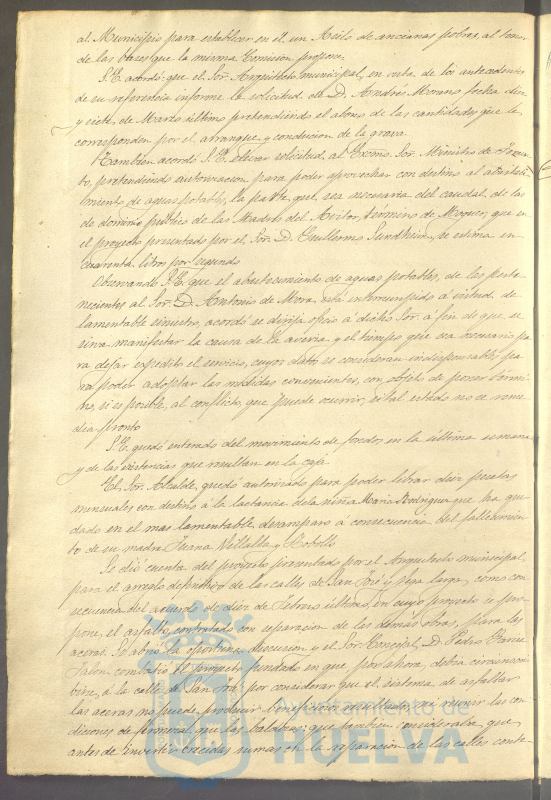 al Municipio para establecer en él un Asilo de ancianos pobres, al tenor
de las bases que la misma Comision propone.
S.E. acordó: que el Sor. Arquitecto municipal, en vista de los antecedentes
de su referencia informe la solicitud de D. Andrés Moreno fecha diez
y siete de Marzo último pretendiendo el abono de las cantidades que le
corresponden por el arranque y conduccion de la grava.
Tambien acordó S.E. elevar solicitud al Excmo. Sor. Ministro de Fomen-
to, pretendiendo autorizacion para poder aprovechar con destino al abasteci-
miento de aguas potables, la parte que sea necesaria del caudal de las
de dominio público de las Madres del Avitor, término de Moguer, que en
el proyecto presentado por el Sor. D. Guillermo Sundheim, se estima en
cuarenta litros por segundo.
Observando S.E. que el abastecimiento de aguas potables, de las perte-
necientes al Sor. D. Antonio de Mora, está interrumpido á virtud de
lamentable siniestro, acordó se dirija oficio á dicho Sor. á fin de que se
sirva manifestar la causa de la averia y el tiempo que sea necesario pa-
ra dejar expedito el servicio, cuyos datos se consideran indispensables pa-
ra poder adoptar las medidas convenientes, con objeto de poner térmi-
no, si es posible, al conflicto que puede ocurrir, si tal estado no se reme-
dia pronto.
S.E. quedó enterado del movimiento de fondos en la última semana
y de las existencias que resultan en la caja.
El Sor. Alcalde, quedó autorizado para poder librar diez pesetas
mensuales con destino á la lactancia de la niña Maria Rodriguez que ha que-
dado en el mas lamentable desamparo á consecuencia del fallecimien-
to de su madre Juana Villalba y
Se dió cuenta del proyecto presentado por el Arquitecto municipal
para el arreglo definitivo de las calles de San José y Peña larga, como con-
secuencia del acuerdo de diez de Febrero último, en cuyo proyecto se pro-
pone, el asfalto, contratado con separacion de las demás obras, para las
aceras. Se abrió la oportuna discusion y el Sor. Concejal D. Pedro Garcia
Jalon combatió el proyecto fundado en que por ahora, debia circunscri-
birse, á la calle de San José por considerar que el sistema de asfaltar
las aceras no puede producir beneficioso resultado, ni reunir las con-
diciones de permanencia que las baldosas: que tambien consideraba que
antes de invertir crecidas sumas en la reparacion de las calles conta-
Ayuntamiento de
HUELVA